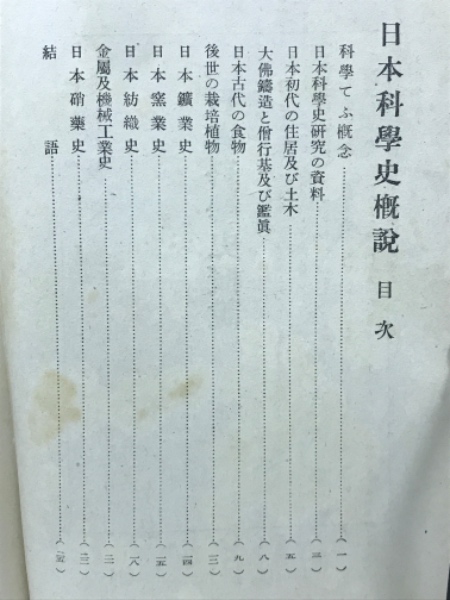 日本科學史概說 目次
科學てふ概念……(一)
日本科學史研究の資料……(三)
日本初代の住居及び土木……(五)
大佛鑄造と僧行基及び鑑眞……(八)
日本古代の食物……(九)
後世の栽培植物……(一三)
日本鑛業史……(一四)
日本窯業史……(一五)
日本紡織史……(一八)
金屬及機械工業史……(二一)
日本硝藥史……(二三)
結語……(二五)